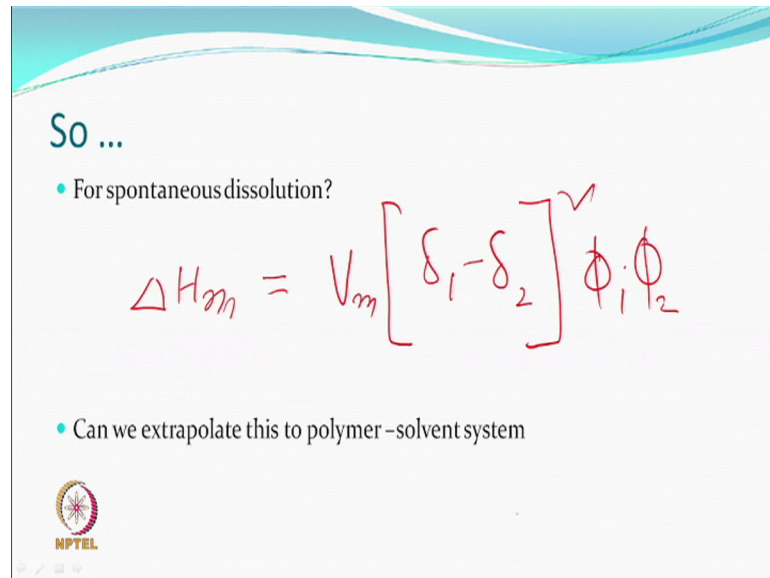 So ...
• For spontaneous dissolution?
ΔHm = Vm[δ1-δ2]² ϕ1ϕ2
• Can we extrapolate this to polymer –solvent system
NPTEL